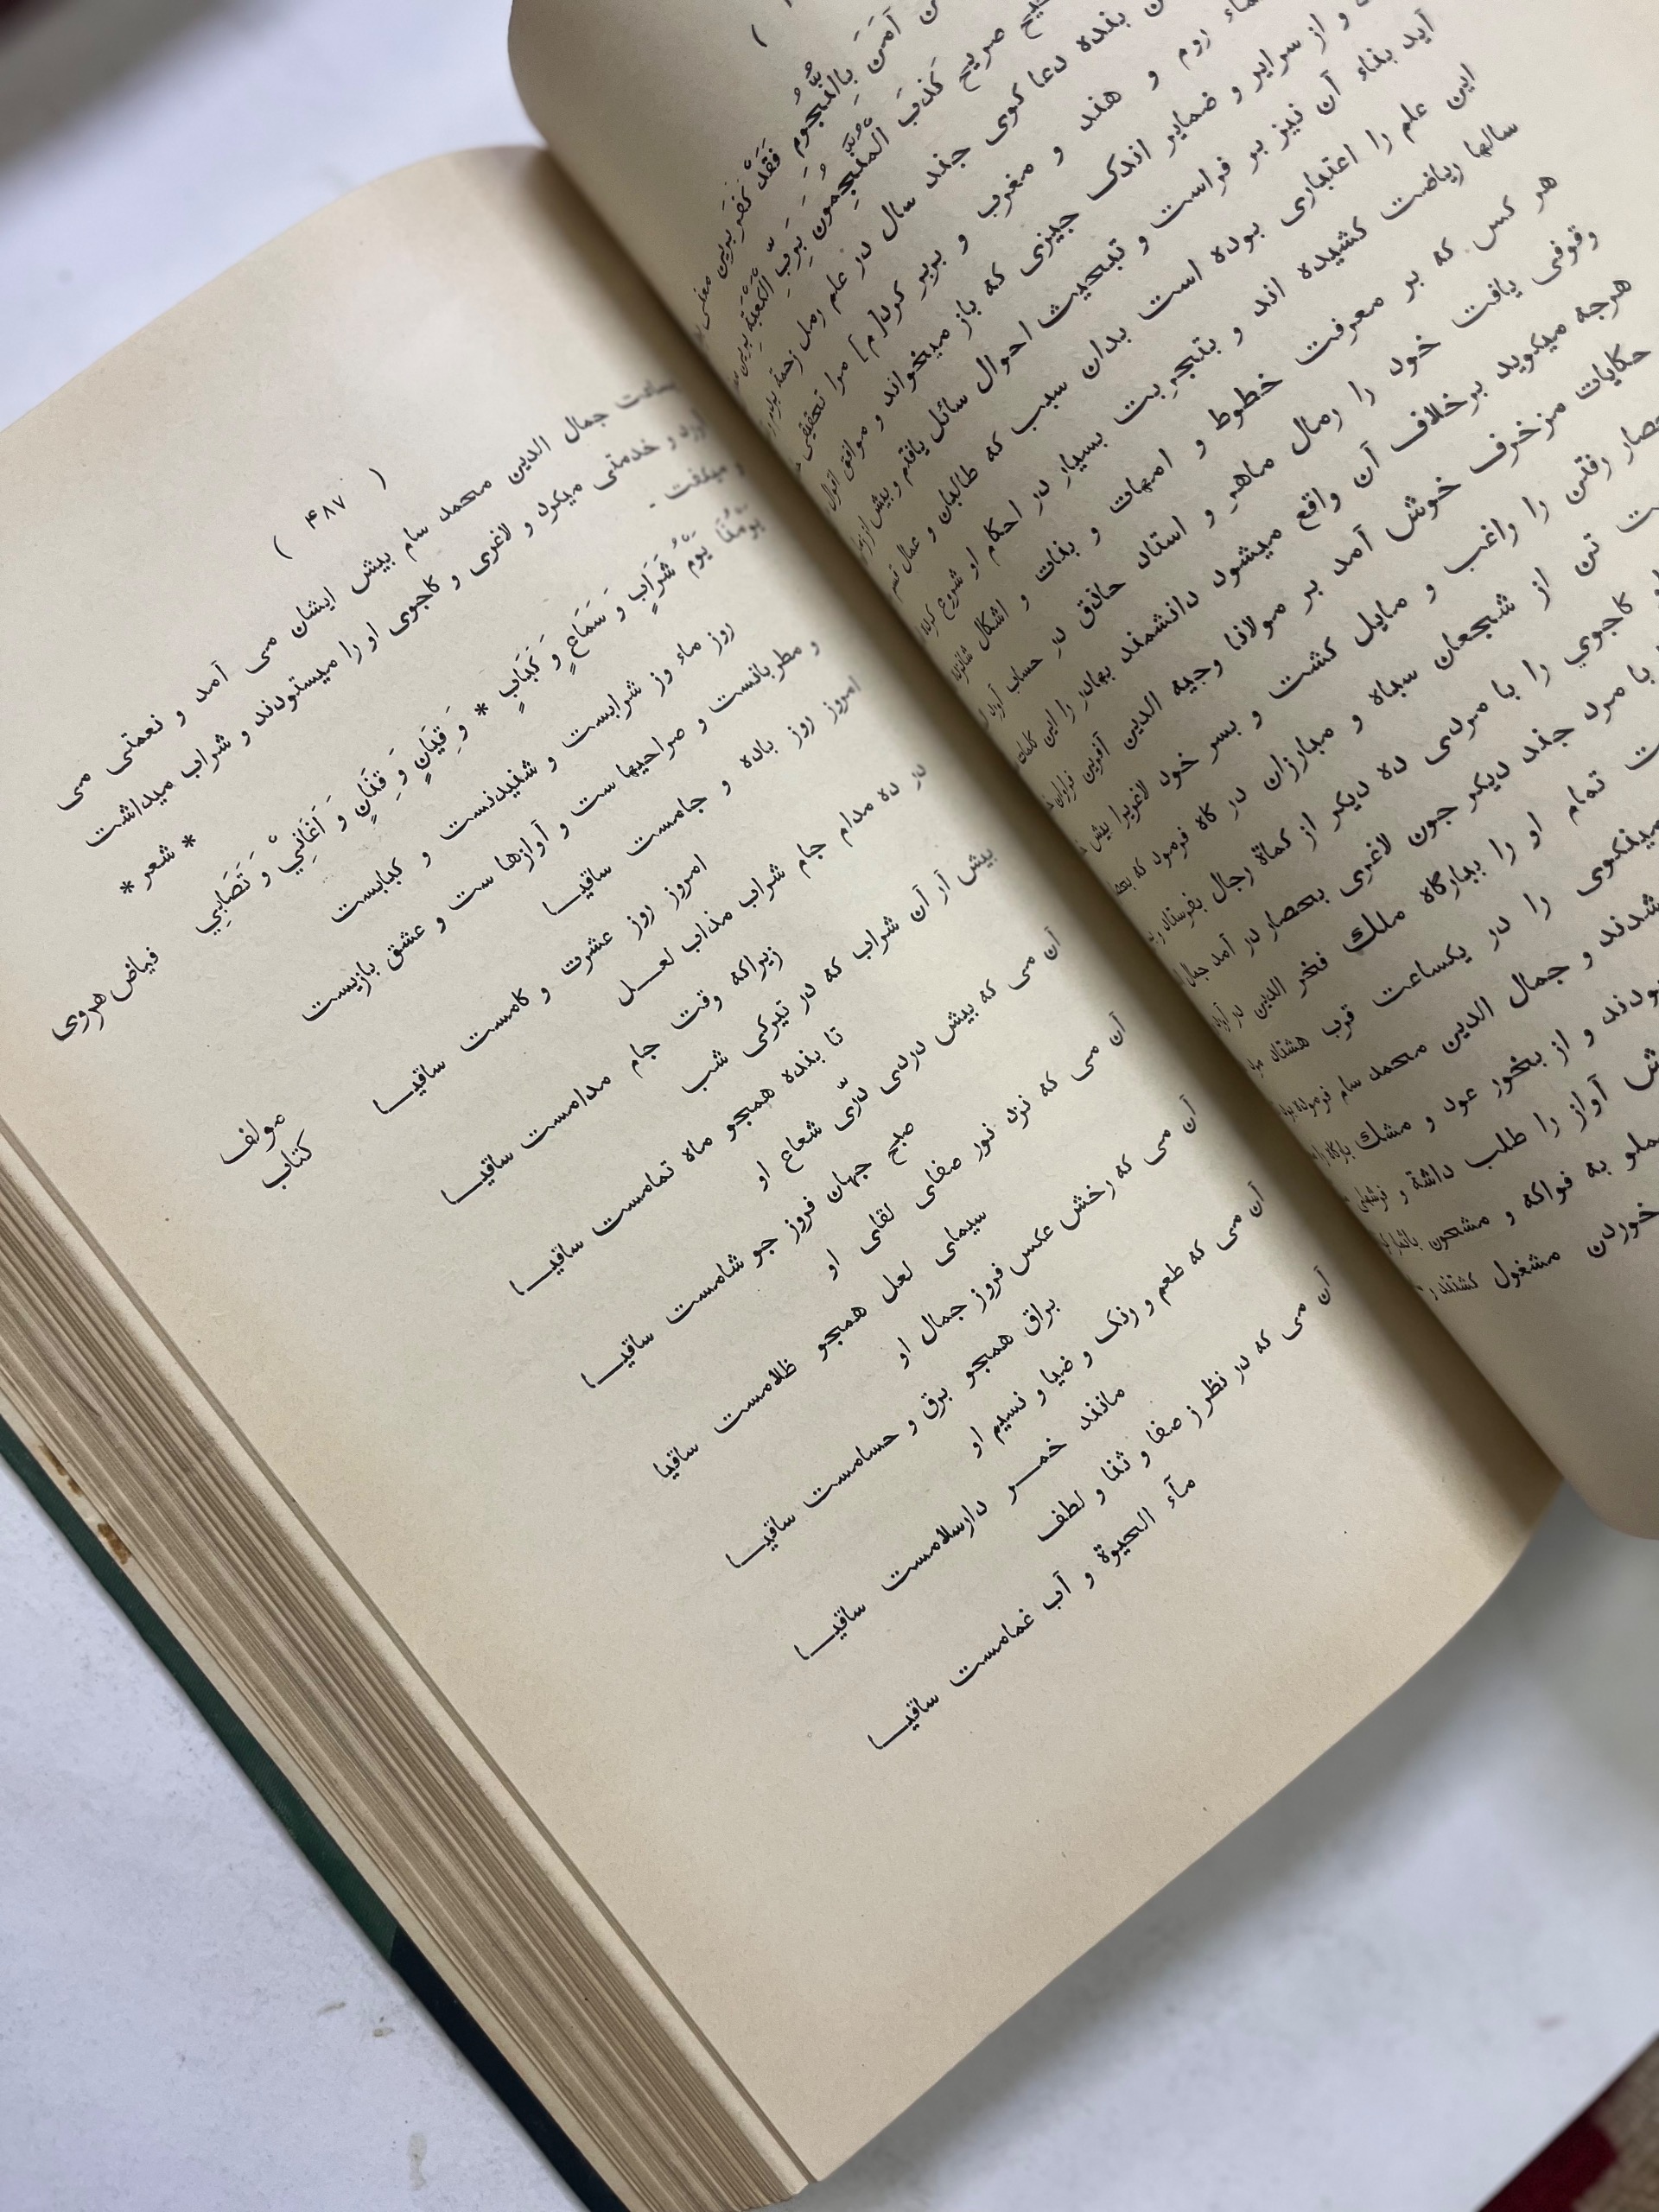 ( ۴۸۷ )
جمال الدین محمد سام بیش ایشان می آمد و نعمتی می
و خدمتی میکرد و لاغری و کاجوی او را میستودند و شراب میداشت
و میگفت .
* شعر *
یَوْمُنَا یَوْمُ شَرَابٍ وَ سَمَاعٍ وَ کَبَابٍ * وَ قِیَانٍ وَ قِنَانٍ وَ أَغَانِيْ وَ تَصَابِي
فیاض هروی
روز ماء وز شرابست و شنیدنست و کبابست
و مطربانست و صراحیها ست و آوازها ست و عشق بازیست
امروز روز باده و جامست ساقیـا
امروز روز عشرت و کامست ساقیـا
مولف
کتاب
در ده مدام جام شراب مذاب لعـل
زیراکه وقت جام مدامست ساقیـا
بیش آر آن شراب که در تیرکی شب
تا بنده همجو ماه تمامست ساقیـا
آن می که بیش دردی درّی شعاع او
صبح جهان فروز جو شامست ساقیـا
آن می که نزد نور صفای لقای او
سیمای لعل همجو ظلامست ساقیا
آن می که رخش عکس فروز جمال او
براق همجو برق و حسامست ساقیـا
آن می که طعم و رنک و ضیا و نسیم او
مانند خمـر دارسلامست ساقیـا
آن می که در نظر ز صفا و ثنا و لطف
مآء الحیوة و آب غمامست ساقیـا
آمَنَ بِالنُّجُومِ فَقَدْ کَفَرَ بدین
صریح کَذَبَ الْمُنَجِّمُونَ بِرَبِّ الْکَعْبَةِ بدین
بنده دعا کوی جند سال در علم رمل زحمة
روم و هند و مغرب و بربر کرد[م] مرا تحقیقی
و از سرایر و ضمایر اندک جیزی که باز میخواند و موافق
آید بناء آن نیز بر فراست و تبحیث احوال سائل یافتم و بیش از
این علم را اعتباری بوده است بدان سبب که طالبان و عمال
سالها ریاضت کشیده اند و بتجربت بسیار در احکام او شروع کرده
هر کس که بر معرفت خطوط و امهات و بنات و اشکال
وقوفی یافت خود را رمال ماهر و استاد حاذق در حساب آورد
هرجه میکوید برخلاف آن واقع میشود دانشمند بهادر را این کلمات
حکایات مزخرف خوش آمد بر مولانا وجیه الدین آفرین فراوان
رفتن را راغب و مایل کشت و بسر خود لاغریرا بیش
تن از شجعان سباه و مبارزان در کاه فرمود که
کاجوي را با مردی ده دیکر از کماة رجال بفرستاد
با مرد جند دیکر جون لاغری بحصار در آمد جمال
تمام او را ببارکاه ملک فخر الدین در
را در یکساعت قرب هشتاد
شدند و جمال الدین محمد سام فرموده
بودند و از بخور عود و مشک بارکاه
آواز را طلب داشة و
مملو به فواکه و مشحون
خوردن مشغول کشتند